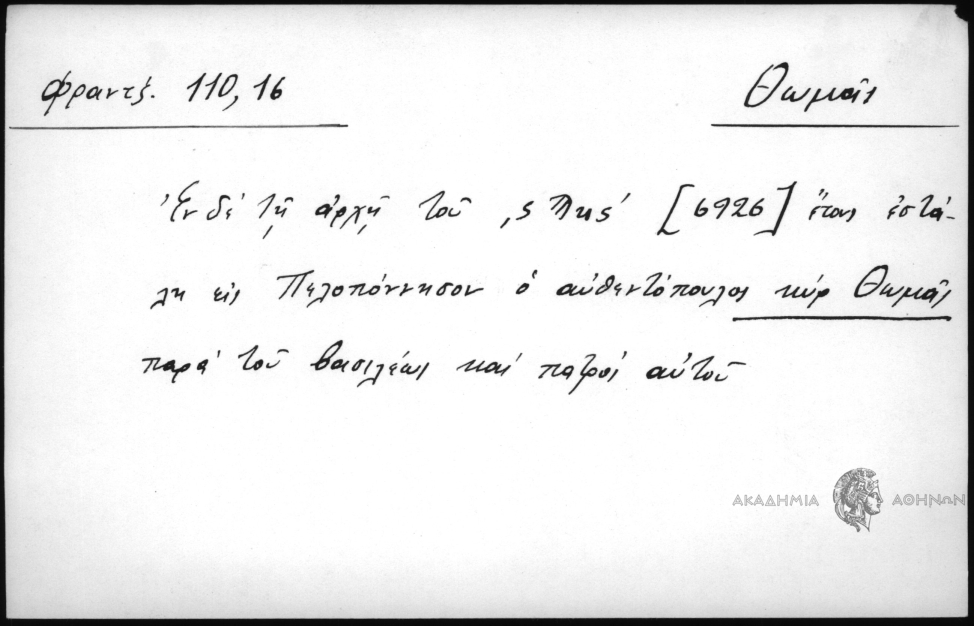 Φραντζ. 110, 16
Θωμᾶς
Ἐν δὲ τῇ ἀρχῇ τοῦ ͵ϛϠκϛ´ [6926] ἔτους ἐστά-
λη εἰς Πελοπόννησον ὁ αὐθεντόπουλος κὺρ Θωμᾶς
παρὰ τοῦ βασιλέως καὶ πατρὸς αὐτοῦ
ΑΚΑΔΗΜΙΑ ΑΘΗΝΩΝ